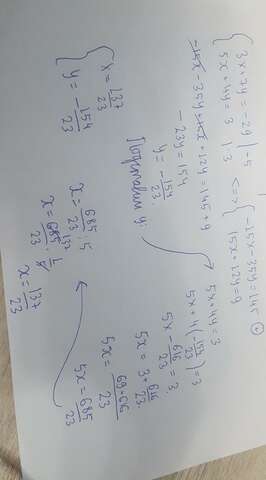 { 3x+7y=-29 | ·5
{ 5x+4y=3 | ·3 <=> { -15x-35y=145 ⊕
{ 15x+12y=9
-15x-35y+15x+12y=145+9
-23y=154
y=-154/23.
Подставим y:
5x+4y=3
5x+4(-154/23)=3
5x-616/23=3
5x=3+616/23.
5x=69+616/23
5x=685/23
x=685/23:5
x=685/23·1/5
x=137/23
{ x=137/23
{ y=-154/23